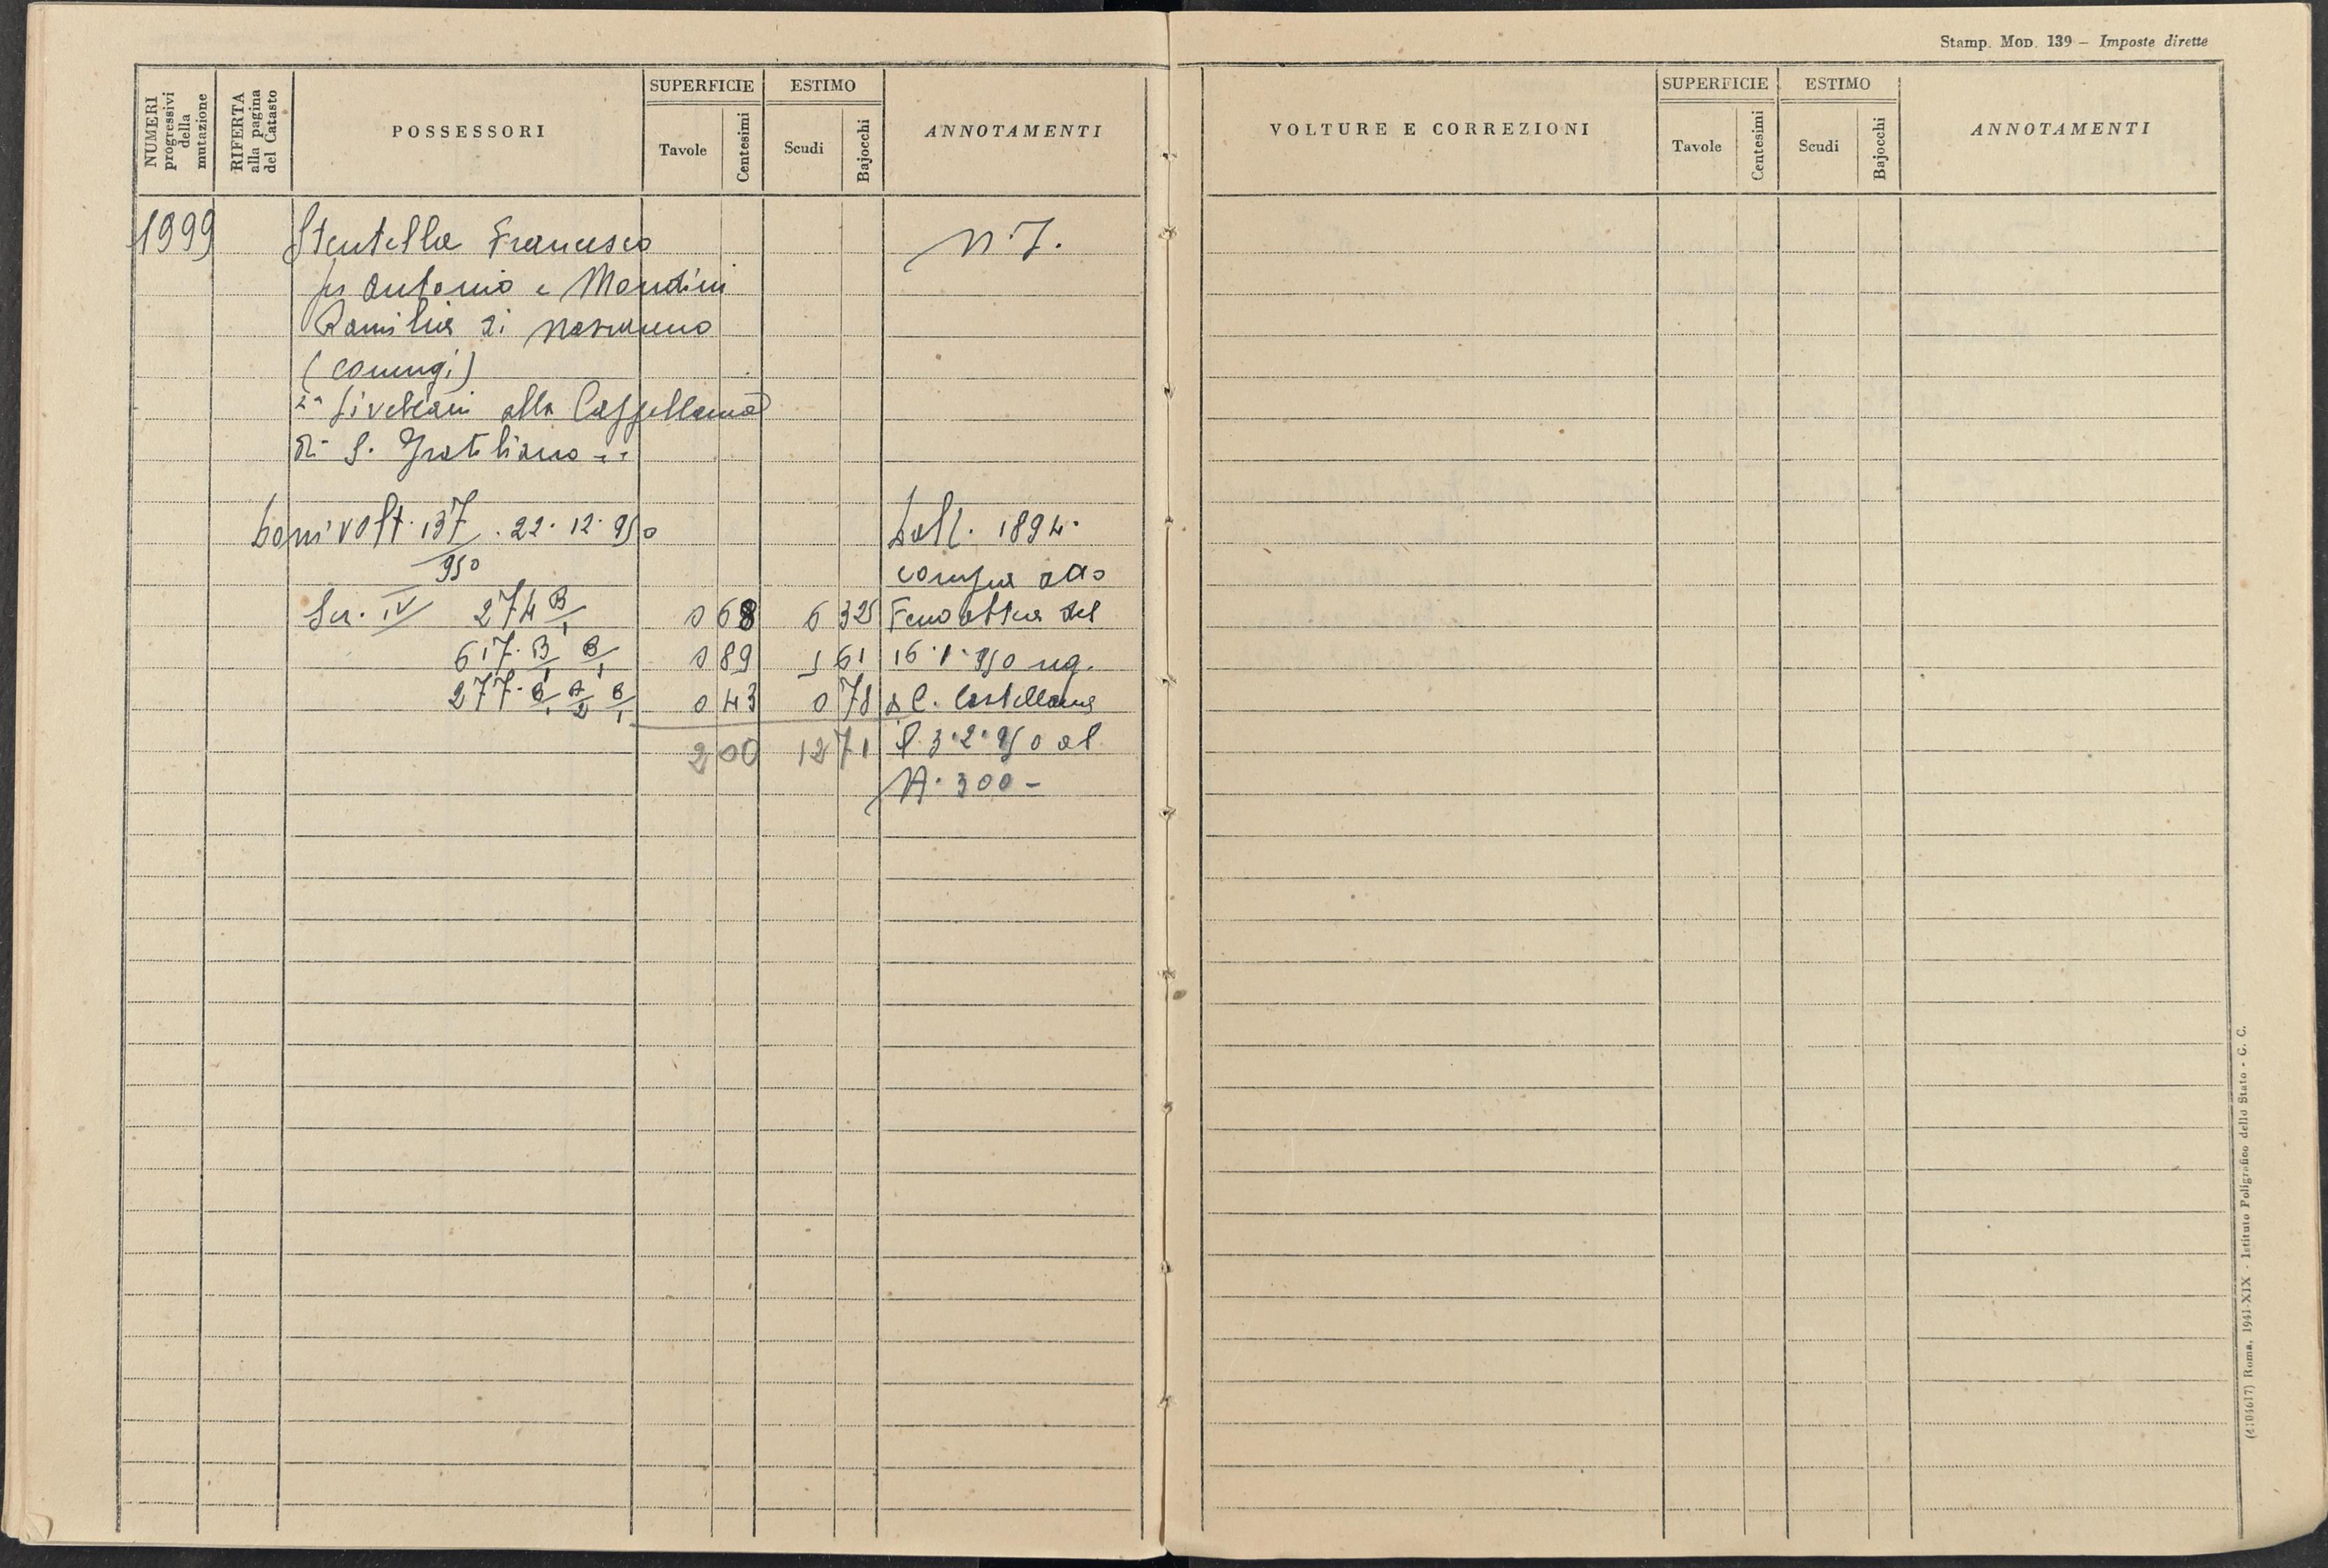 Stamp. Mod. 139 – Imposte dirette
NUMERI progressivi della mutazione
RIFERTA alla pagina del Catasto
POSSESSORI
SUPERFICIE
Tavole
Centesimi
ESTIMO
Scudi
Bajocchi
ANNOTAMENTI
VOLTURE E CORREZIONI
SUPERFICIE
Tavole
Centesimi
ESTIMO
Scudi
Bajocchi
ANNOTAMENTI
1999 Stentella Francesco N. 7.
fu Antonio e Mandini
Romilia di
(coniugi)
Livellari alla Cappellania
di S. Gratiliano
volt. 137 . 22. 12. 950 1894.
950 compra
Sez. IV 274 B/1 0 68 6 32
617. B/1 B/1 0 89 5 61 16. 1. 950
277. B/1 A/2 B/1 0 43 0 78 a C. Castellana
2 00 12 71 l. 3. 2. 950 al
N. 300 –
(4104617) Roma, 1941-XIX - Istituto Poligrafico dello Stato - G. C.